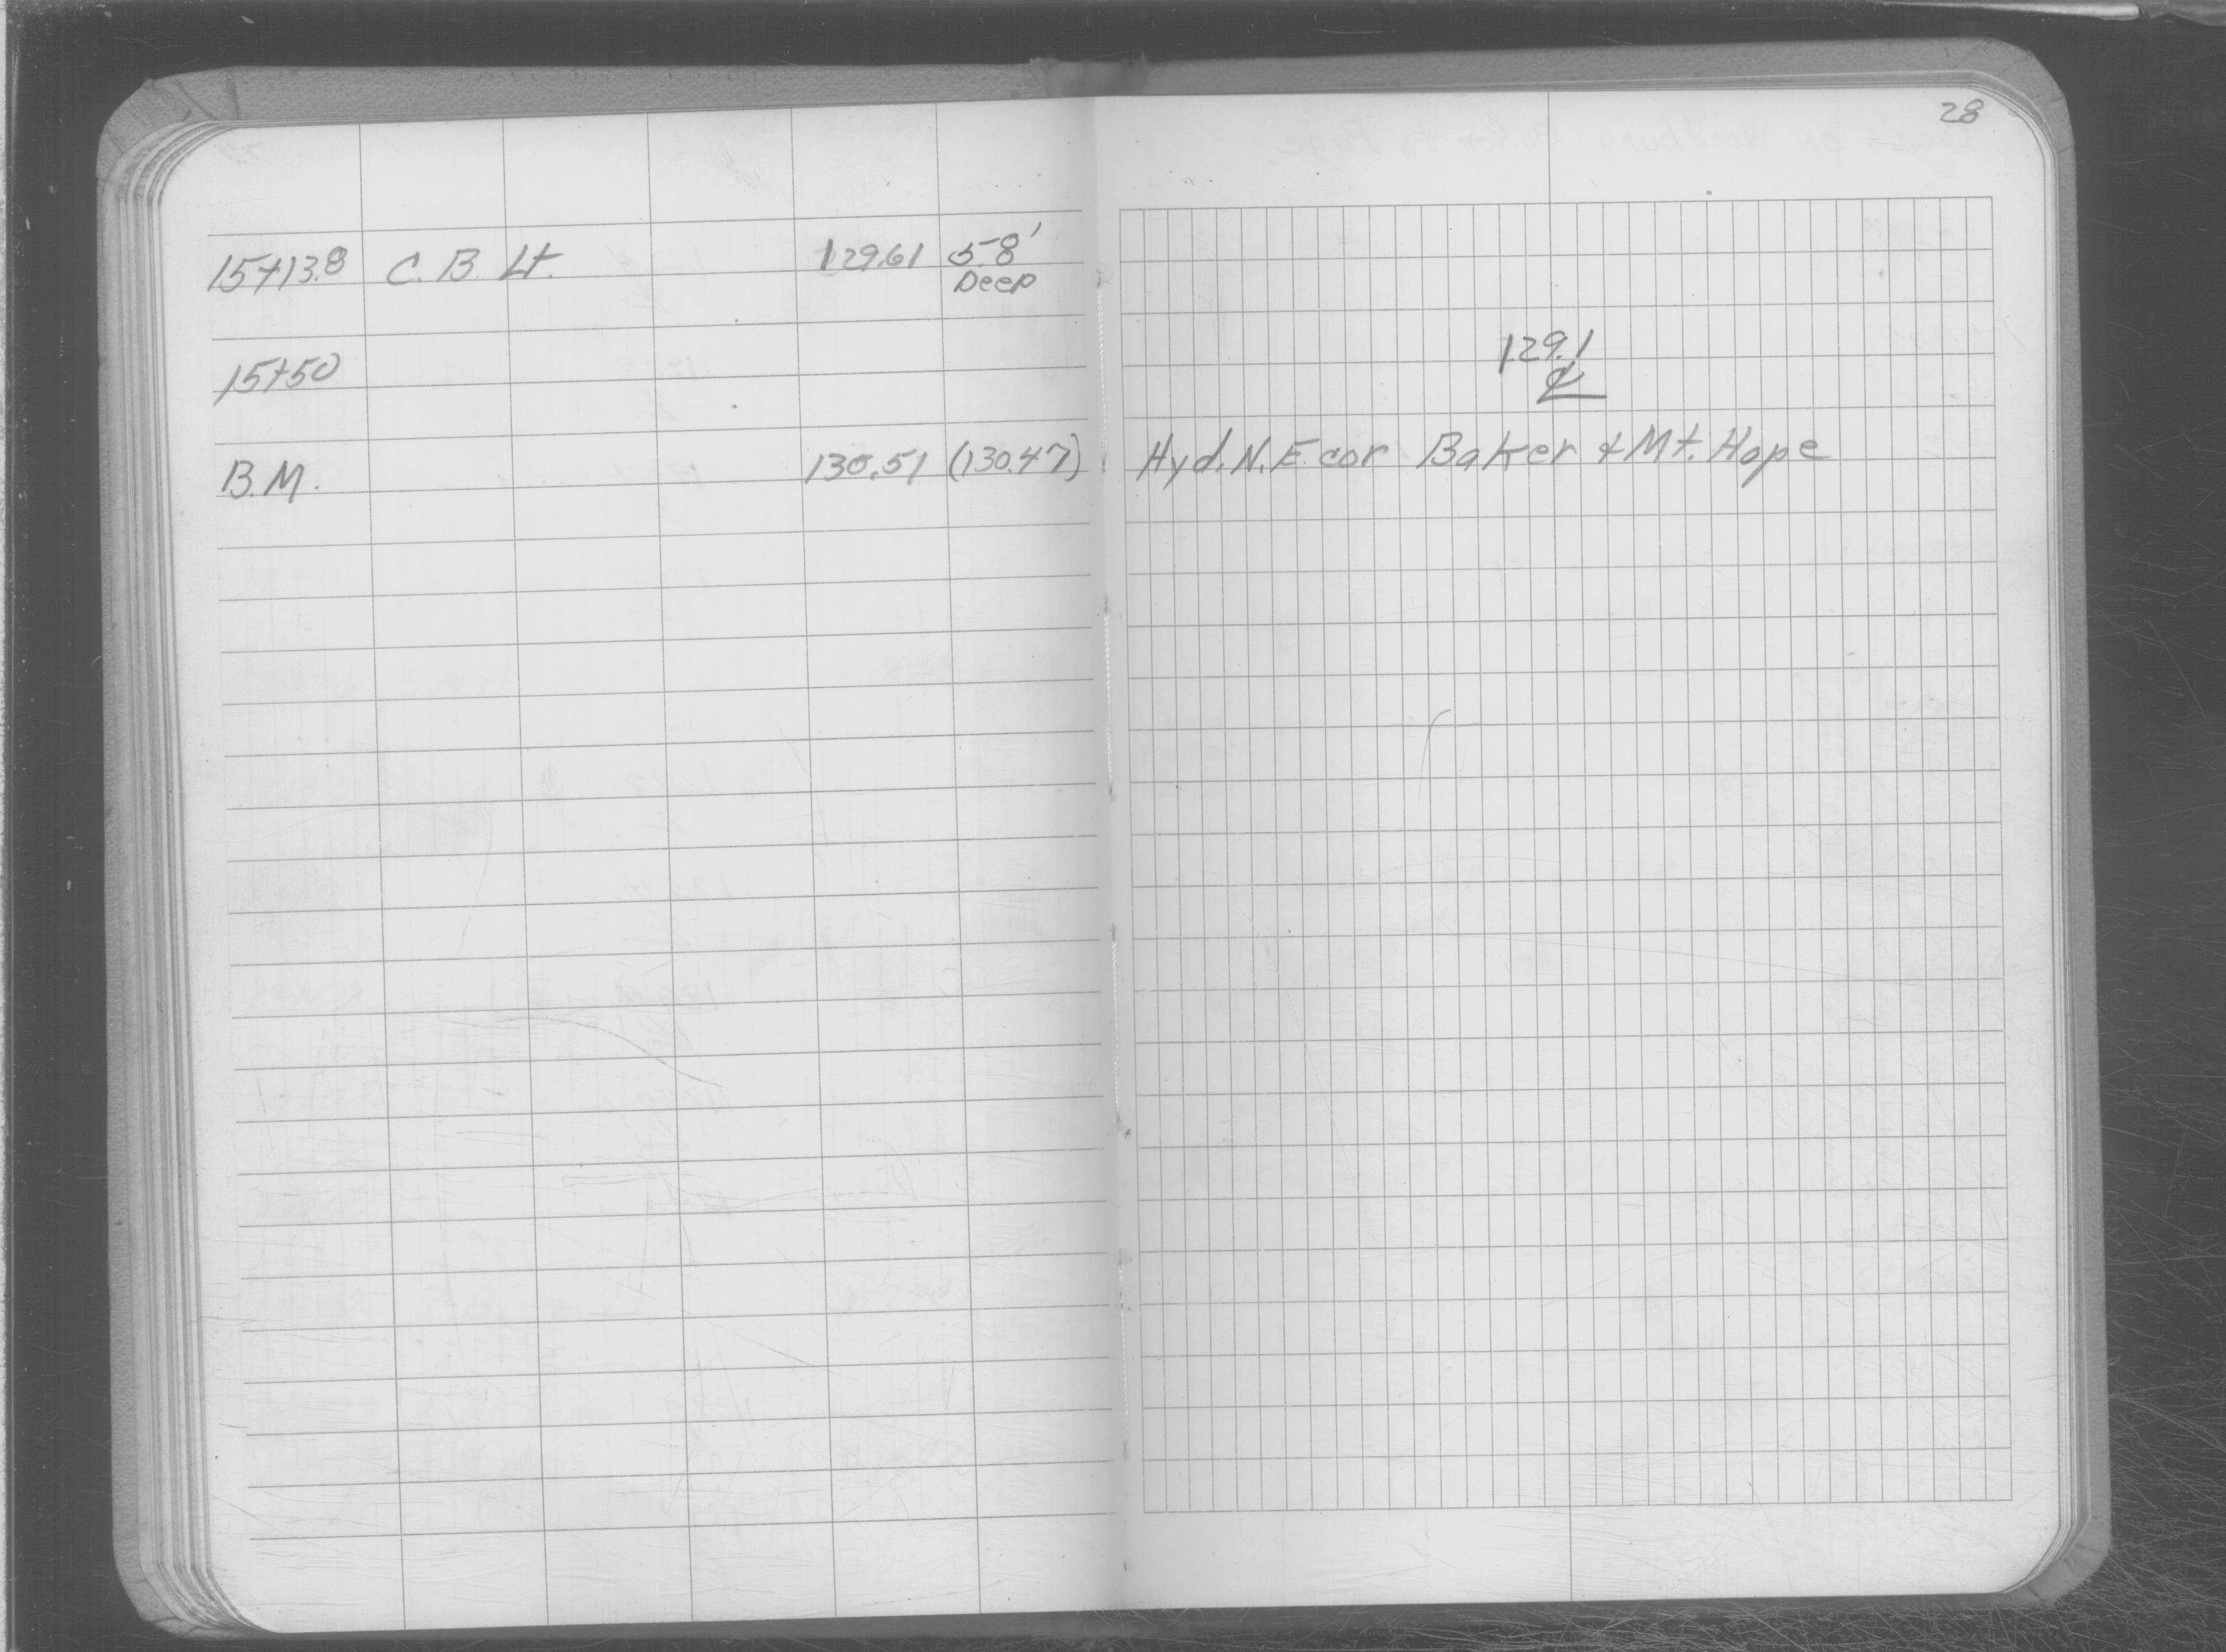 28
15+13.8 C.B. Lt. 129.61 5.8'
Deep
15+50 129.1
℄
B.M. 130.51 (130.47) Hyd. N.E. cor Baker & Mt. Hope